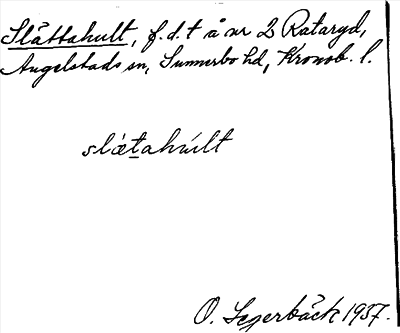 Slättahult, f.d. t å nr 2 Rataryd,
Angelstads sn, Sunnerbo hd, Kronob. l.
slǽtahúlt
O. Segerbäck 1937.